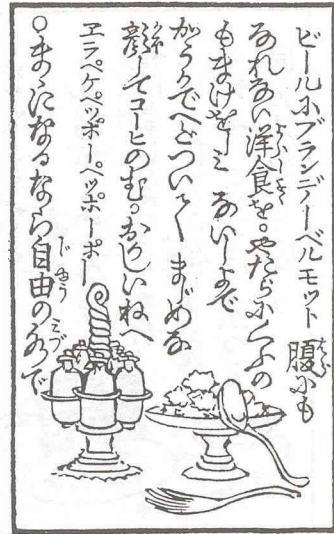 ビールにブランデーベルモット 腹にも
なれない洋食を。やたらにくふの
もまけをしミ ないしよで
かうかでへどついて まじめな
顔してコーヒのむ。おかしいねへ
ヱラペケペッポーペッポーポー
○まゝになるなら自由の水で